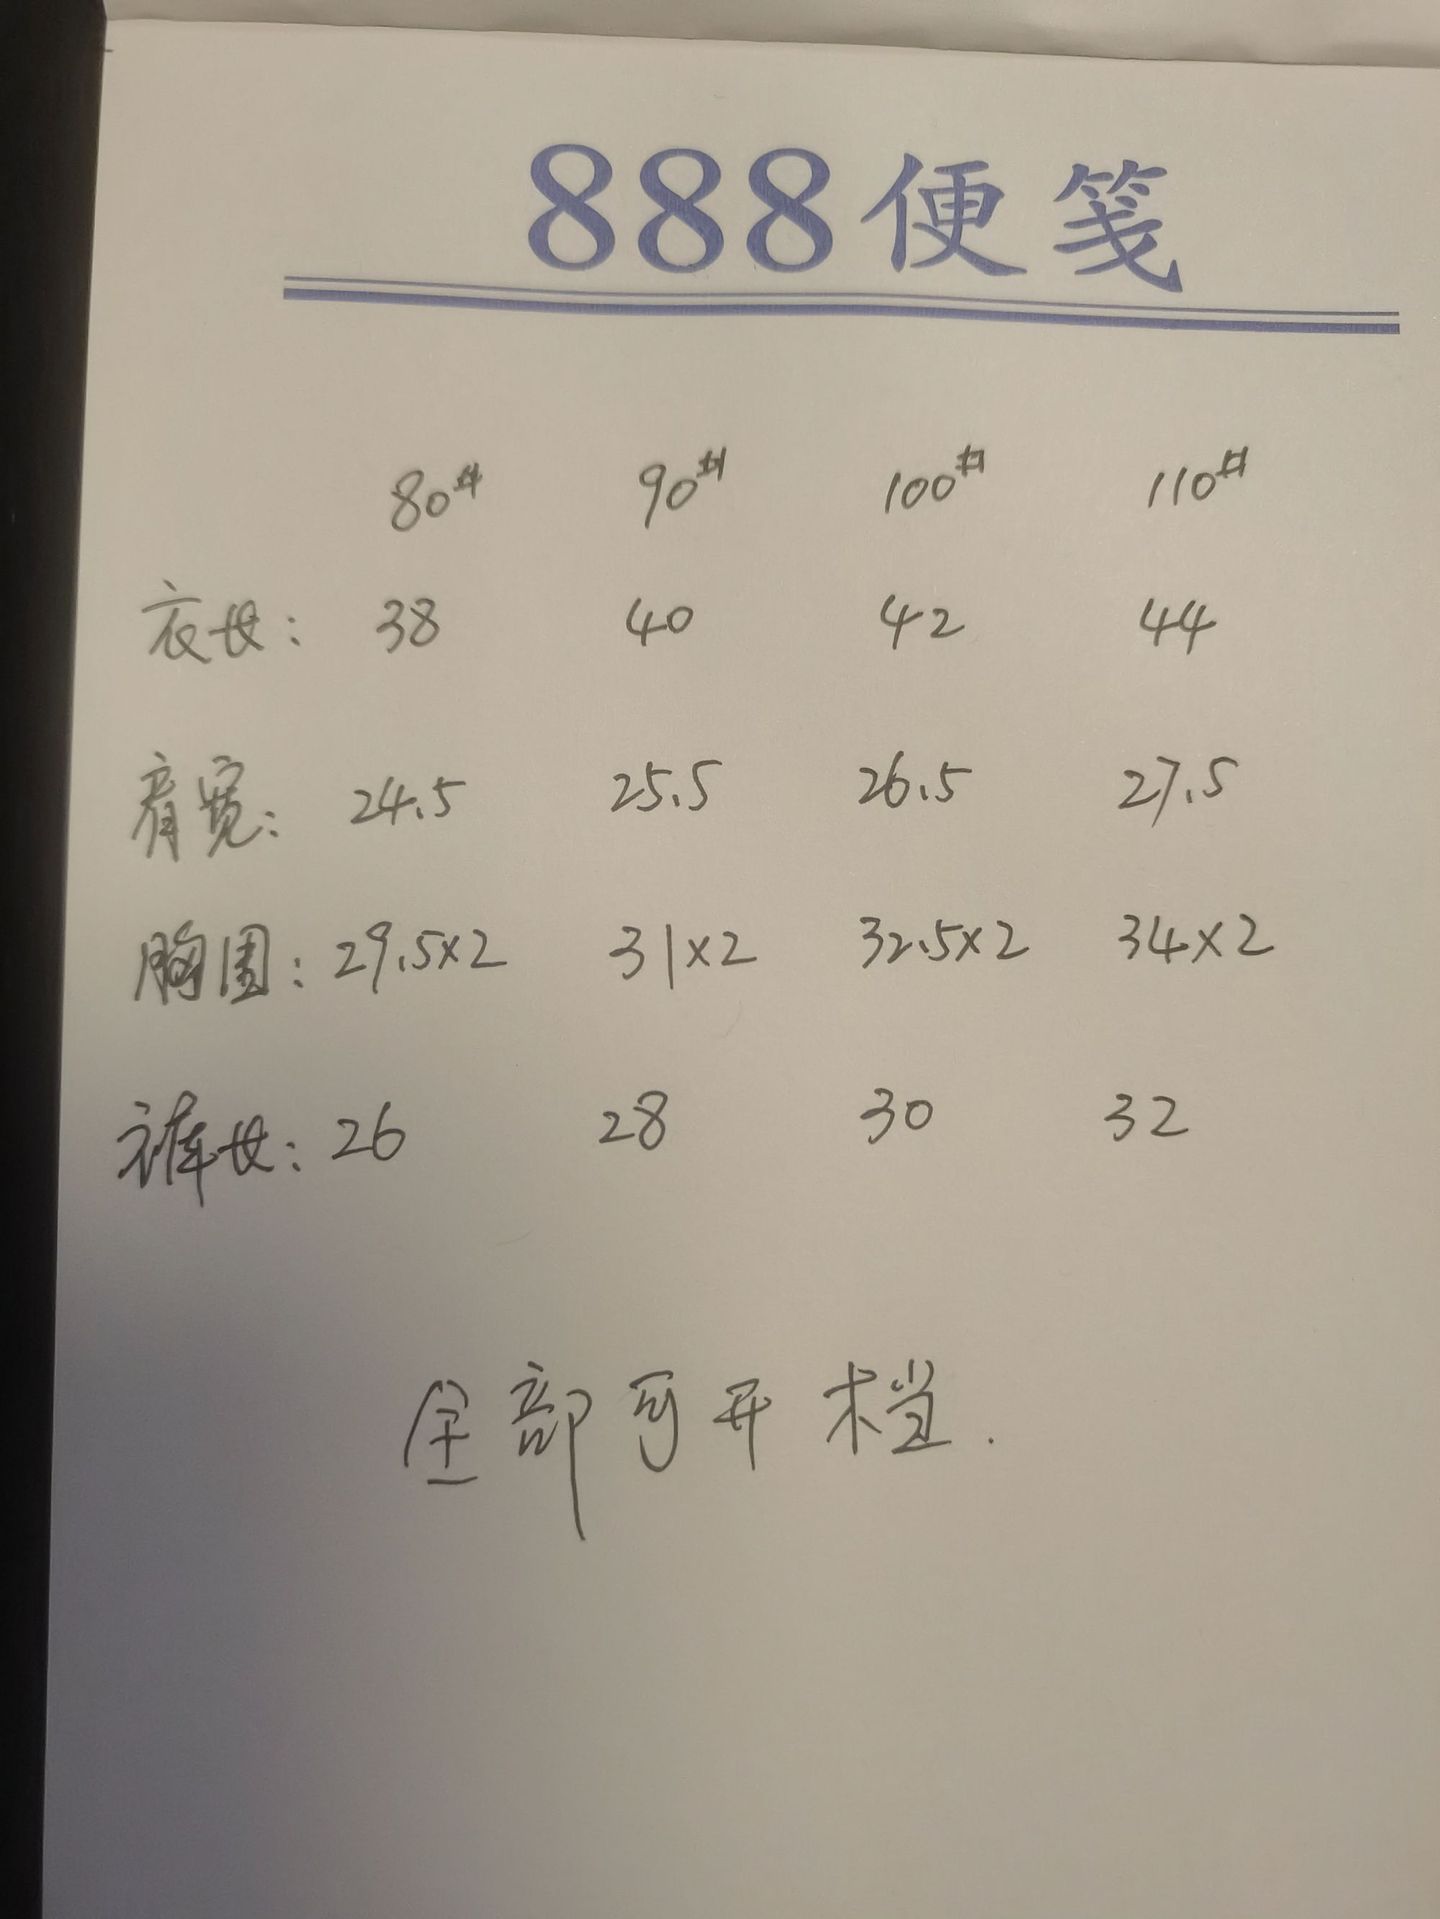 888便笺
80# 90# 100# 110#
衣长: 38 40 42 44
肩宽: 24.5 25.5 26.5 27.5
胸围: 29.5×2 31×2 32.5×2 34×2
裤长: 26 28 30 32
全部可开档.